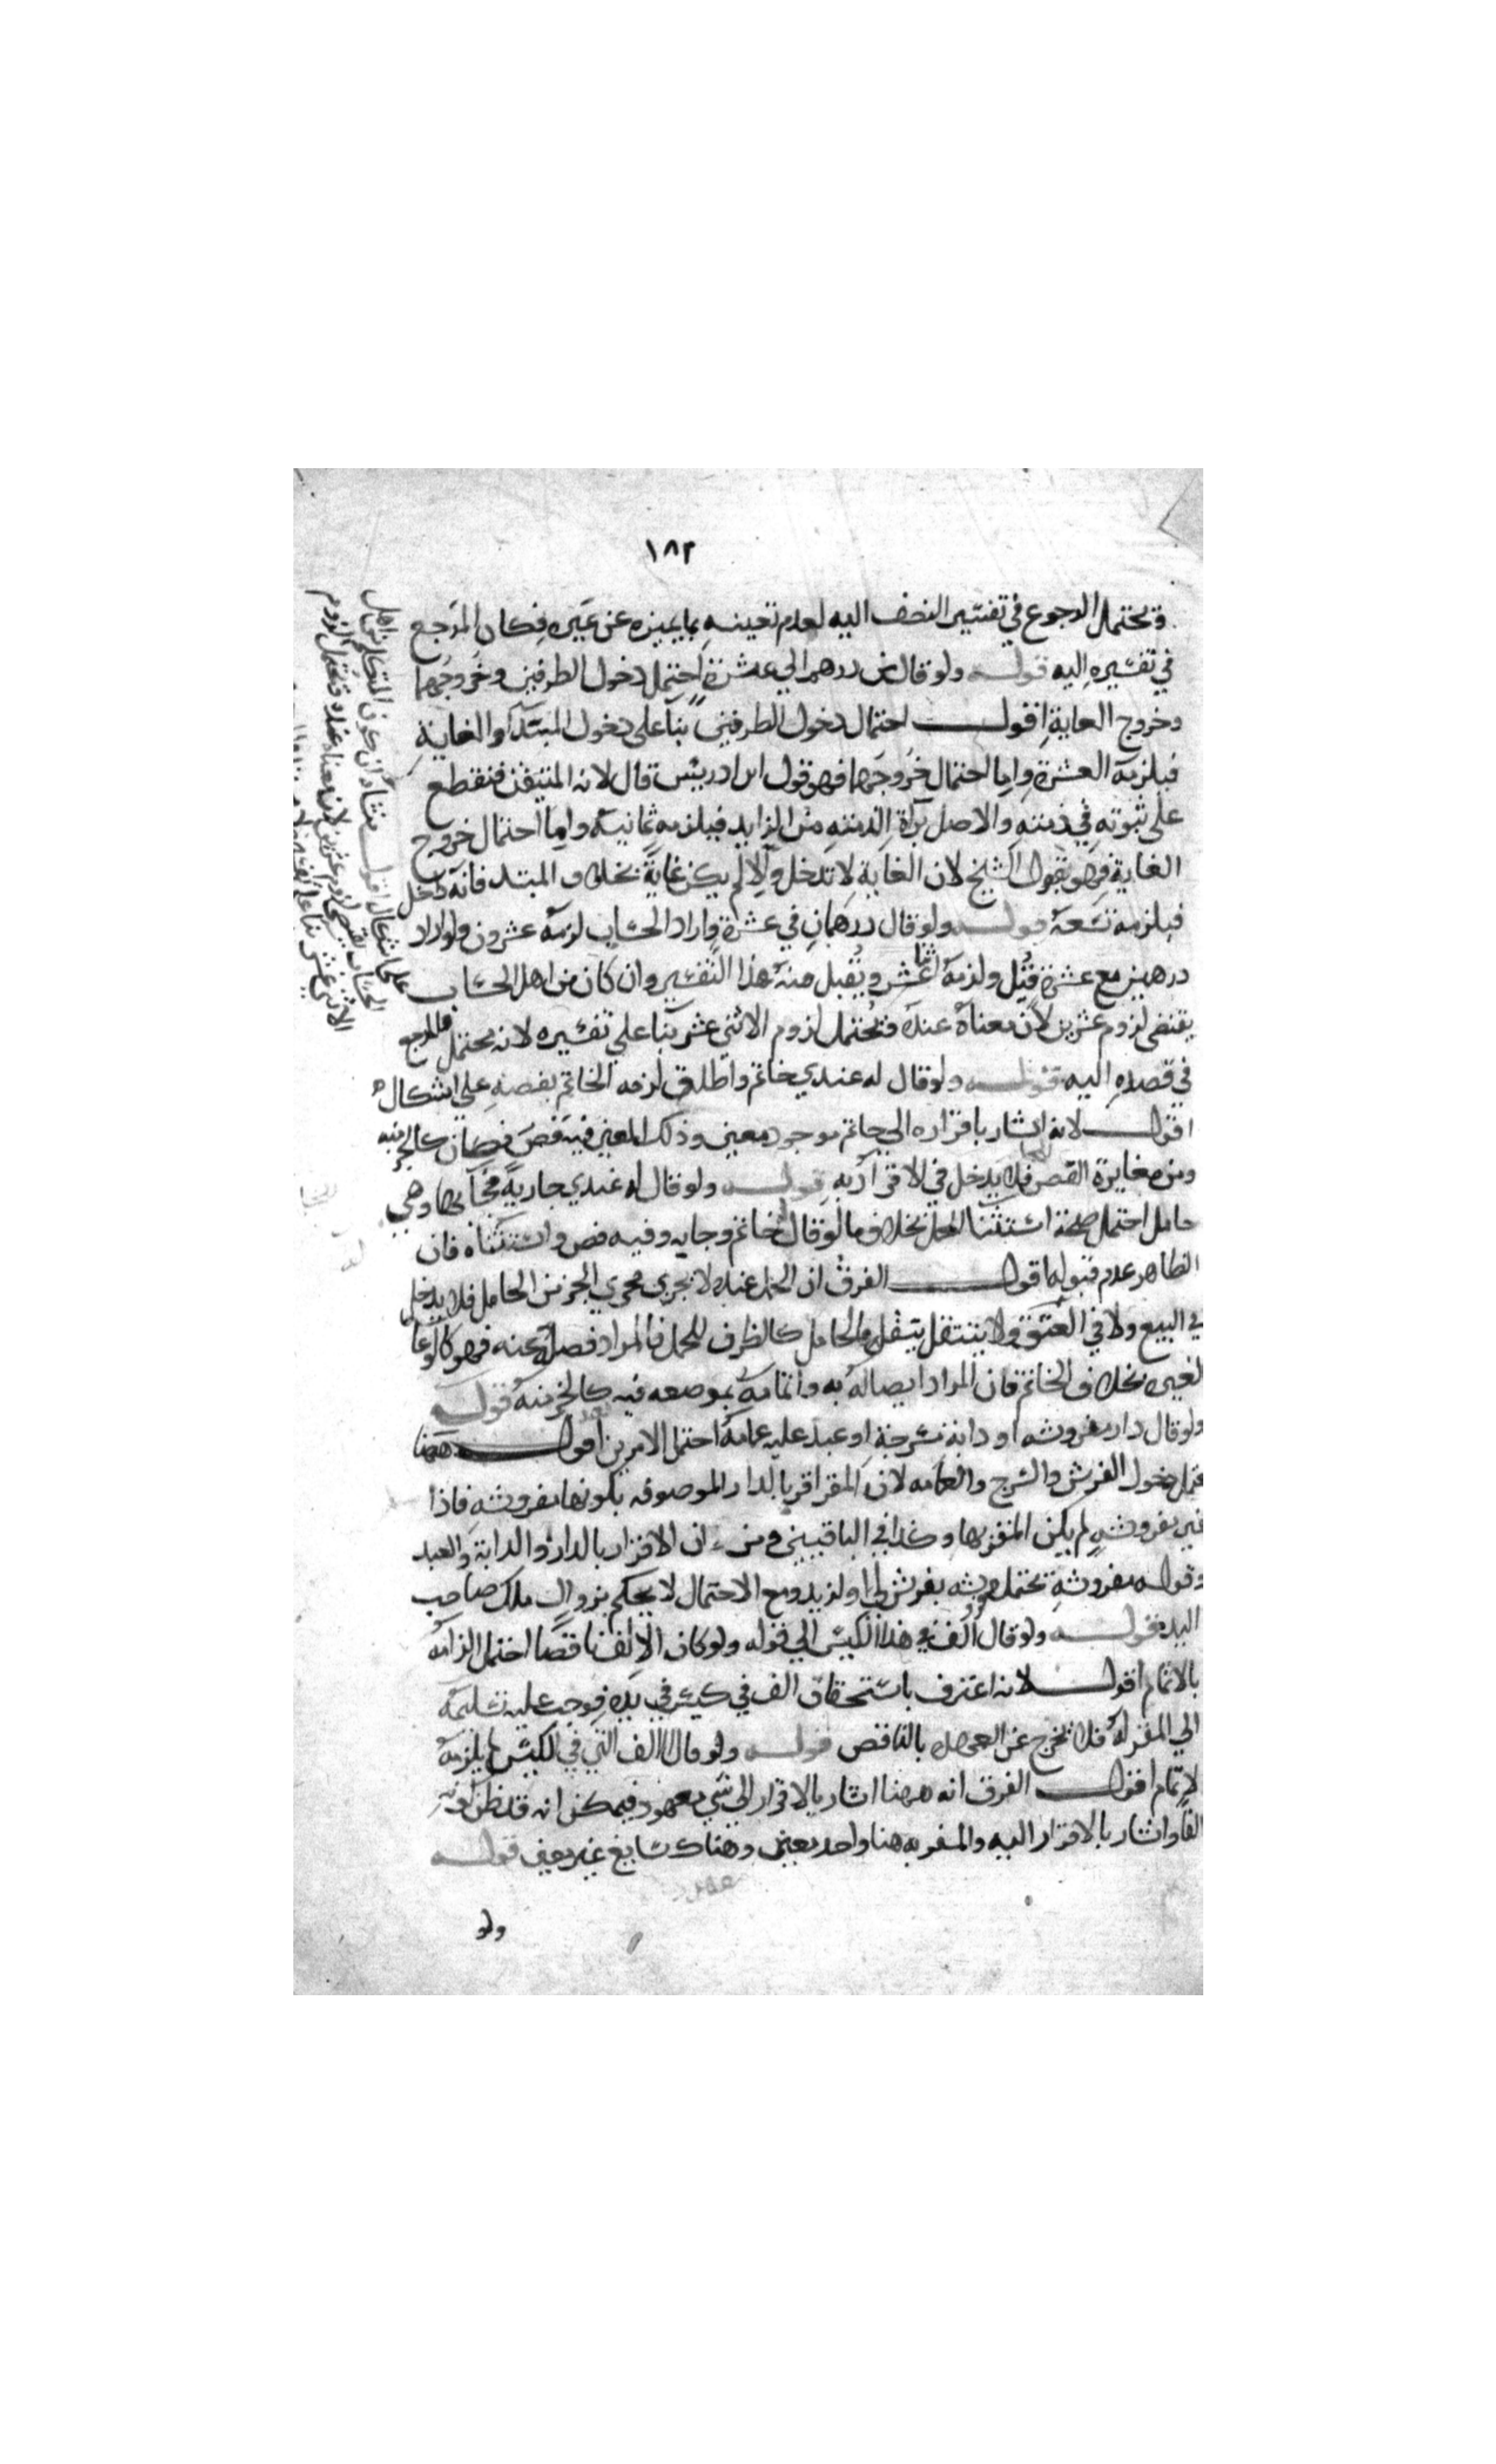 ١٨٢
ويحتمل الرجوع في تفسير النصف اليه لعدم تعينه بما يميزه عن غيره فكان المرجع
في تفسيره اليه قوله ولو قال من درهم الي عشرة احتمل دخول الطرفين وخروجهما
وخروج الغاية اقول احتمال دخول الطرفين بنآ على دخول المبتدآ والغاية
فيلزمه العشرة واما احتمال خروجهما فهو قول ابن ادريس قال لانه المتيقن فنقطع
على ثبوته في ذمته والاصل برآة الذمته من الزايد فيلزمه ثمانية واما احتمال خروج
الغاية فهو بقول الشيخ لان الغاية لا تدخل والا لم يكن غاية بخلاف المبتد فانه دخل
فيلزمه تسعة قوله ولو قال درهمان في عشرة واراد الحساب لزمه عشرون ولو اراد
درهمين مع عشرة قبل ولزمه اثنا عشر ويقبل منه هذا التفسير وان كان من اهل الحساب
يقتضي لزوم عشرين لان معناه عنده فتحتمل لزوم الاثنى عشر بنآ على تفسيره لانه يحتمل فالمرجع
في قصده اليه قوله ولو قال له عندي خاتم واطلق لزمه الخاتم بفصه على اشكال
اقول لانه اشار باقراره الي خاتم موجود معين وذلك المعين فيه فص فكان كالجزء منه
ومن مغايرة الفص فلا يدخل في الاقرار به قوله ولو قال له عندي جارية فجآ بها وهي
حامل احتمل صحة استثنا الحمل بخلاف ما لو قال خاتم وجا به وفيه فص واستثناه فان
الظاهر عدم قبوله اقول الفرق ان الحمل عنده لا يجرى مجرى الجزء من الحامل فلا يدخل
في البيع ولا في العتق ولا ينتقل والحامل كالظرف للحمل فالمراد فصله عنه فهو كالوعا
لغيره بخلاف الخاتم فان المراد ايصاله به واتمامه بموضعه فيه كالجزء منه قوله
ولو قال دار مفروشه او دابة مسرجة او عبد عليه عمامة احتمل الامرين اقول ههنا
يحتمل دخول الفرش والسرج والعمامه لان المقر اقر بالدار الموصوفه بكونها مفروشه فاذا
غير مفروشه لم يكن المقر بها وكذا في الباقيين ومن ان الاقرار بالدار والدابة والعبد
وقوله مفروشة يحتمل بفرش لي او لزيد ومع الاحتمال لا يحكم بزوال ملك صاحب
اليد قوله ولو قال الف في هذا الكيس الي قوله ولو كان الالف ناقصا احتمل الزامه
بالاتمام اقول لانه اعترف باستحقاق الف في كيس في يده فوجب عليه تسليمه
الي المقر له فلا يخرج عن العهده بالناقص قوله ولو قال الالف التي في الكيس لم يلزمه
الاتمام اقول الفرق انه ههنا اشار بالاقرار الي شي معهود فيمكن انه قد ظن كونه
الفا واشار بالاقرار اليه والمقر به هنا واحد معين وهناك شايع غير معين قوله
ولو
على اشكال اقول منشاه ان كون المتكلم من اهل
الحساب يقتضي لزوم عشرين لان معناه عنده فتحتمل لزوم
الاثنى عشر بنا على تفسيره